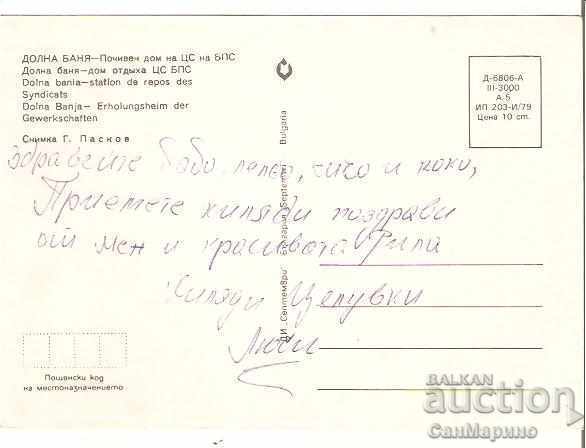 ДОЛНА БАНЯ—Почивен дом на ЦС на БПС
Долна баня—дом отдыха ЦС БПС
Dolna bania—station de repos des
Syndicats
Dolna Banja— Erholungsheim der
Gewerkschaften
Снимка Г. Пасков
Д-6806-А
III-3000
А.5
ИП 203-И/79
Цена 10 ст.
ДИ „Септември" България Septemvri Bulgaria
Здравейте бабо, лельо, чичо и
Приемете хиляди поздрави
от мен и красивата Рила
Хиляди Целувки
Люси
Пощенски код
на местоназначението
BALKAN
auction
СанМарино